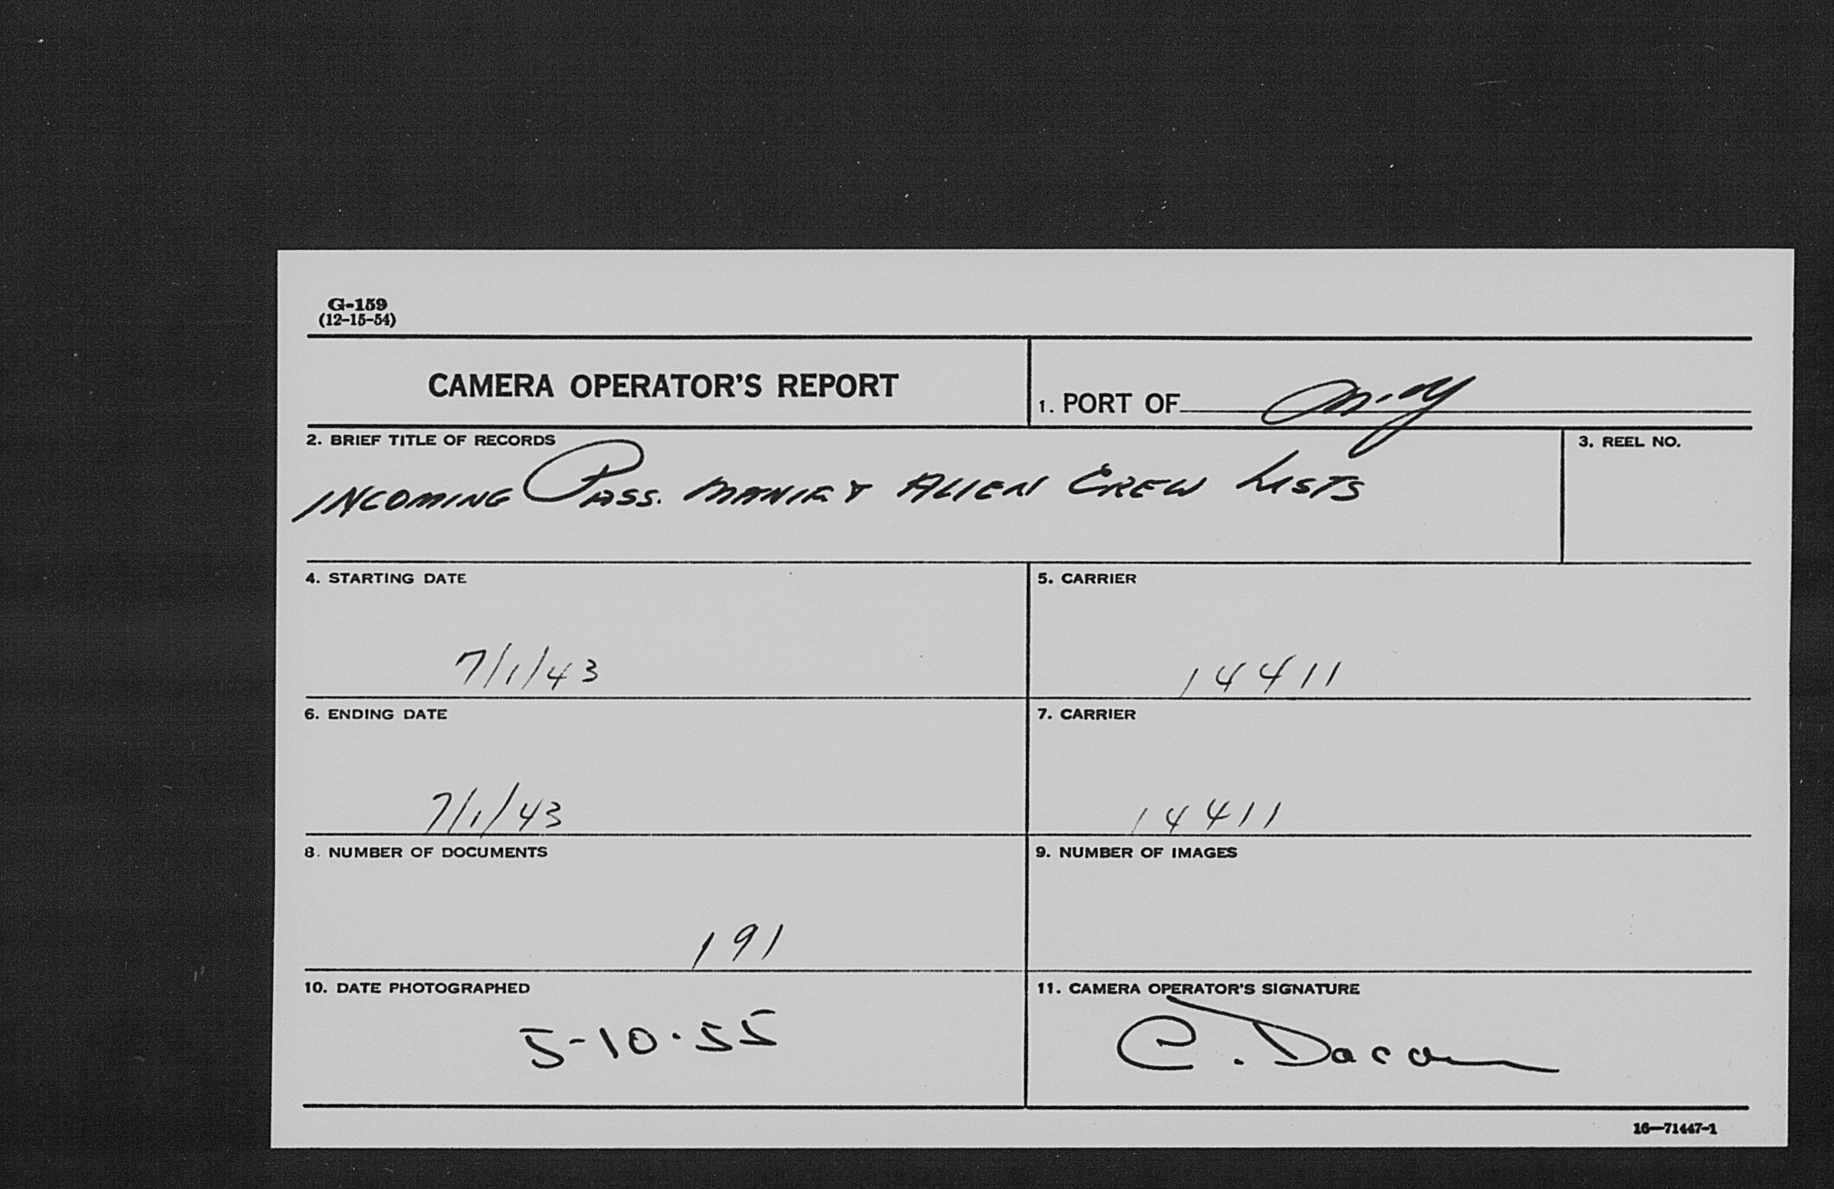 G-159
(12-15-54)
CAMERA OPERATOR'S REPORT
1. PORT OF
2. BRIEF TITLE OF RECORDS
3. REEL NO.
INCOMING PASS. MANIF & ALIEN CREW LISTS
4. STARTING DATE
5. CARRIER
7/1/43
14411
6. ENDING DATE
7. CARRIER
7/1/43
14411
8. NUMBER OF DOCUMENTS
9. NUMBER OF IMAGES
191
10. DATE PHOTOGRAPHED
11. CAMERA OPERATOR'S SIGNATURE
5-10-55
C. 
16—71447-1